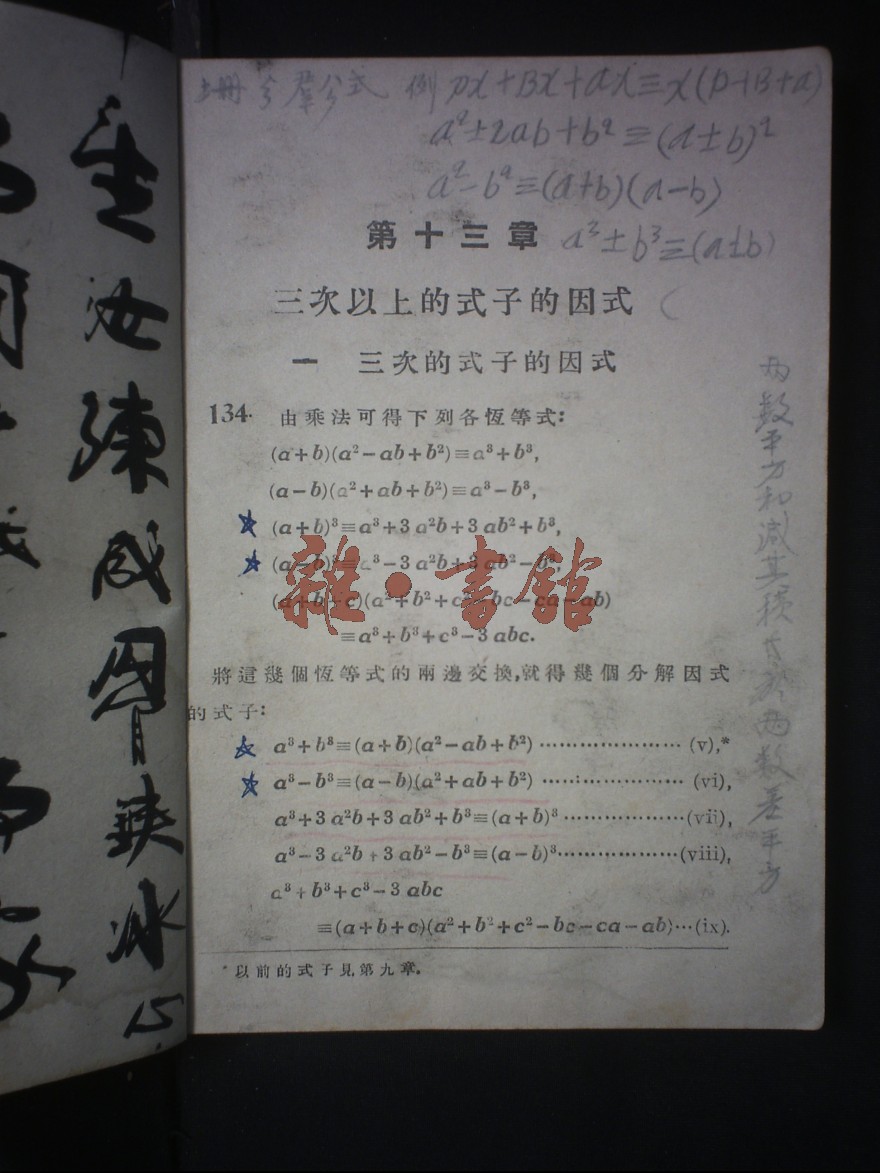 上册 公式 例 px+Bx+ax≡x(p+B+a)
a²±2ab+b²≡(a±b)²
a²-b²≡(a+b)(a-b)
a³±b³≡(a±b)
第十三章
三次以上的式子的因式
一 三次的式子的因式
134. 由乘法可得下列各恆等式:
(a+b)(a²-ab+b²)≡a³+b³,
(a-b)(a²+ab+b²)≡a³-b³,
(a+b)³≡a³+3a²b+3ab²+b³,
(a-b)³≡a³-3a²b+3ab²-b³,
(a+b+c)(a²+b²+c²-bc-ca-ab)
≡a³+b³+c³-3abc.
雜·書館
將這幾個恆等式的兩邊交換,就得幾個分解因式
的式子:
a³+b³≡(a+b)(a²-ab+b²)……………………(v),*
a³-b³≡(a-b)(a²+ab+b²)……………………(vi),
a³+3a²b+3ab²+b³≡(a+b)³…………………(vii),
a³-3a²b+3ab²-b³≡(a-b)³…………………(viii),
a³+b³+c³-3abc
≡(a+b+c)(a²+b²+c²-bc-ca-ab)…(ix).
*以前的式子見第九章.
两数平方和减其积 两数差平方
15